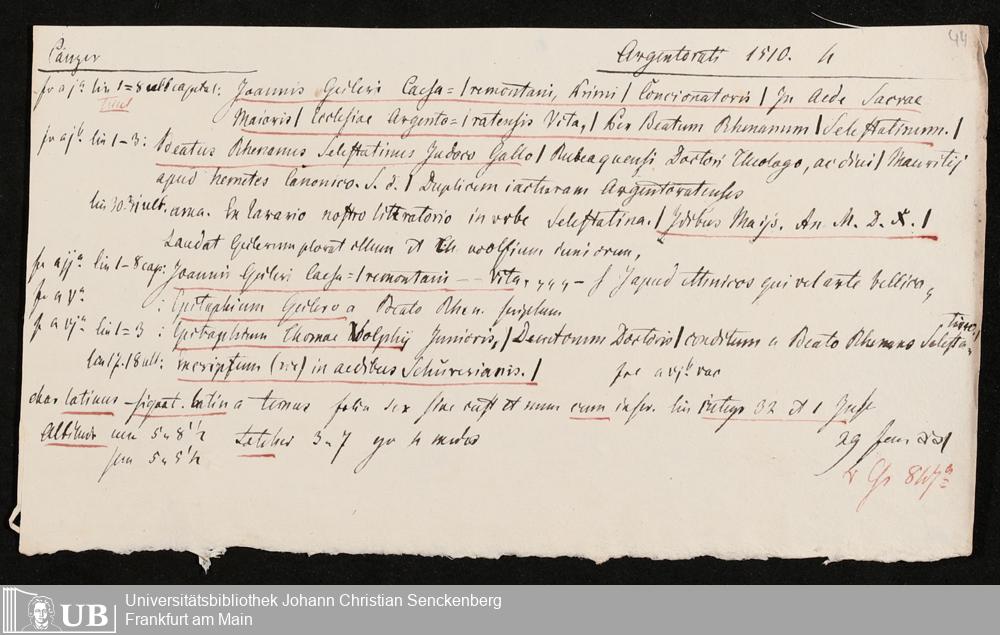 44
Cänzer Argentorati 1510. 4
fo a jᵃ lin 1=8 ult capital: Joannis Geileri Caesa=/remontani, Primi/ Concionatoris/ In Aede Sacrae
Titel Maioris/ Ecclesiae Argento=/ratensis Vita,/ Per Beatum Rhenanum/ Selestatinum./
fo a jᵇ. lin 1-3: Beatus Rhenanus Selestatinus Judoco Gallo/ Rubeaquensi Doctori Theologo, ac divi/ Mauritij
apud Canonico. S. d./ Duplicem iacturam Argentoratensis
lin 30.31 ult. Ex lavario nostro literatorio in vrbe Selestatina./ Idibus Maijs. An M. D. X./
Laudat Geilerum plorat illum et Th woolfium iuniorem,
fo a jjᵃ lin 1-8 cap: Joannis Geileri Caesa=/remontani -- Vita, apud qui vel arte bellica
fo a vᵃ : Epitaphium Geilero a Beato Rhen. scriptum
fo a vjᵃ lin 1=3 : Epitaphium Thomae Wolphij Junioris,/ Decretorum Doctoris/ conditum a Beato Rhenano Selesta
tino,
lin 17.18 ult: excriptum (sic) in aedibus Schürerianis./ fol a vjᵇ vac
char latinus signat. latina ternus folia sex sine cust et num cum infer. lin integr 32 et 1
Altitudo 5 u 8 1/2 Latitudo 3 u 7 4
5 u 5 1/2 29
Gr 847ᵃ
UB Universitätsbibliothek Johann Christian Senckenberg
Frankfurt am Main